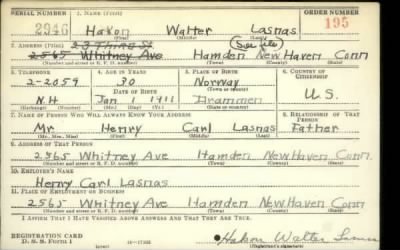 SERIAL NUMBER 1. NAME (Print) ORDER NUMBER
2946 Hakon Walter Lasnas 195
(First) (Middle) (Last)
2. ADDRESS (Print) 23 Third St (See file)
2565 Whitney Ave Hamden New Haven Conn
(Number and street or R. F. D. number) (Town) (County) (State)
3. TELEPHONE 4. AGE IN YEARS 5. PLACE OF BIRTH 6. COUNTRY OF CITIZENSHIP
2-2059 30 Norway
DATE OF BIRTH (Town or county)
N.H. Jan 1911 Drammen U.S.
(Exchange) (Number) (Mo.) (Day) (Yr.) (State or country)
7. NAME OF PERSON WHO WILL ALWAYS KNOW YOUR ADDRESS 8. RELATIONSHIP OF THAT PERSON
Mr Henry Carl Lasnas Father
(Mr., Mrs., Miss) (First) (Middle) (Last)
9. ADDRESS OF THAT PERSON
2565 Whitney Ave Hamden New Haven Conn.
(Number and street or R. F. D. number) (Town) (County) (State)
10. EMPLOYER'S NAME
Henry Carl Lasnas
11. PLACE OF EMPLOYMENT OR BUSINESS
2565 Whitney Ave Hamden New Haven Conn
(Number and street or R. F. D. number) (Town) (County) (State)
I AFFIRM THAT I HAVE VERIFIED ABOVE ANSWERS AND THAT THEY ARE TRUE.
REGISTRATION CARD
D. S. S. FORM 1 (over) Hakon Walter
(Registrant's signature)